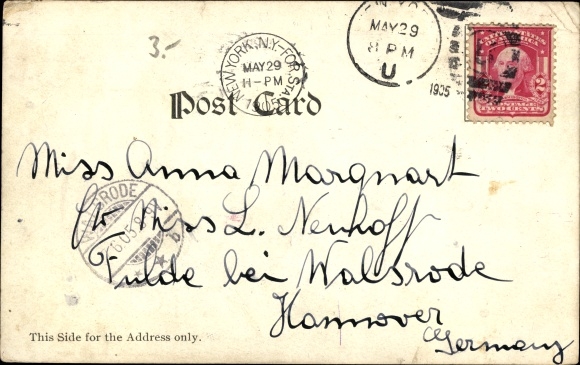 3.-
NEW YORK, N.Y.-FOR. STA.
MAY 29
H-PM
1905
MAY 29
8 PM
U
1905
POSTAGE
TWO CENTS
2
Post Card
Miss Anna Margnart
Miss L. Neuhoff
WALSRODE
Fulde bei Walsrode
Hannover
Germany
This Side for the Address only.